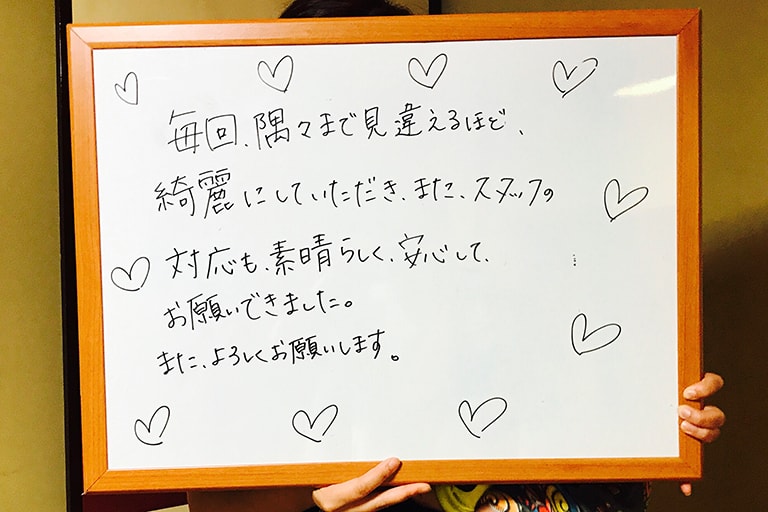 毎回、隅々まで見違えるほど、
綺麗にしていただき、また、スタッフの
対応も、素晴らしく、安心して、
お願いできました。
また、よろしくお願いします。